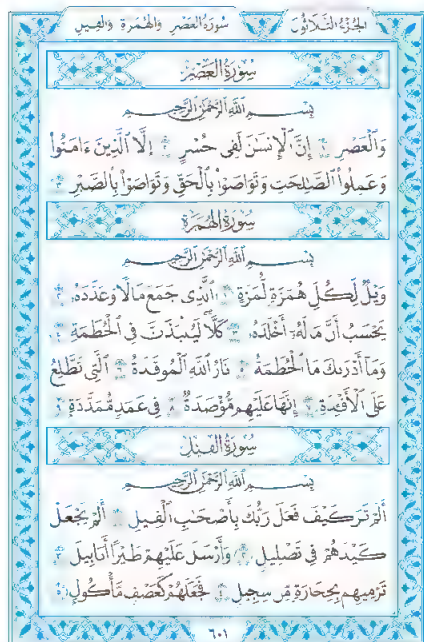 الجزء الثلاثون سورة العصر والهمزة والفيل
سُورَةُ العَصْرِ
بِسْمِ اللَّهِ الرَّحْمَٰنِ الرَّحِيمِ
وَالْعَصْرِ ١ إِنَّ الْإِنسَٰنَ لَفِى خُسْرٍ ٢ إِلَّا الَّذِينَ ءَامَنُوا۟
وَعَمِلُوا۟ الصَّٰلِحَٰتِ وَتَوَاصَوْا۟ بِالْحَقِّ وَتَوَاصَوْا۟ بِالصَّبْرِ ٣
سُورَةُ الهُمَزَةِ
بِسْمِ اللَّهِ الرَّحْمَٰنِ الرَّحِيمِ
وَيْلٌ لِّكُلِّ هُمَزَةٍ لُّمَزَةٍ ١ الَّذِى جَمَعَ مَالًا وَعَدَّدَهُۥ ٢
يَحْسَبُ أَنَّ مَالَهُۥٓ أَخْلَدَهُۥ ٣ كَلَّا لَيُنۢبَذَنَّ فِى الْحُطَمَةِ ٤
وَمَآ أَدْرَىٰكَ مَا الْحُطَمَةُ ٥ نَارُ اللَّهِ الْمُوقَدَةُ ٦ الَّتِى تَطَّلِعُ
عَلَى الْأَفْـِٔدَةِ ٧ إِنَّهَا عَلَيْهِم مُّؤْصَدَةٌ ٨ فِى عَمَدٍ مُّمَدَّدَةٍ ٩
سُورَةُ الفِيلِ
بِسْمِ اللَّهِ الرَّحْمَٰنِ الرَّحِيمِ
أَلَمْ تَرَ كَيْفَ فَعَلَ رَبُّكَ بِأَصْحَٰبِ الْفِيلِ ١ أَلَمْ يَجْعَلْ
كَيْدَهُمْ فِى تَضْلِيلٍ ٢ وَأَرْسَلَ عَلَيْهِمْ طَيْرًا أَبَابِيلَ ٣
تَرْمِيهِم بِحِجَارَةٍ مِّن سِجِّيلٍ ٤ فَجَعَلَهُمْ كَعَصْفٍ مَّأْكُولٍۭ ٥
٦٠١